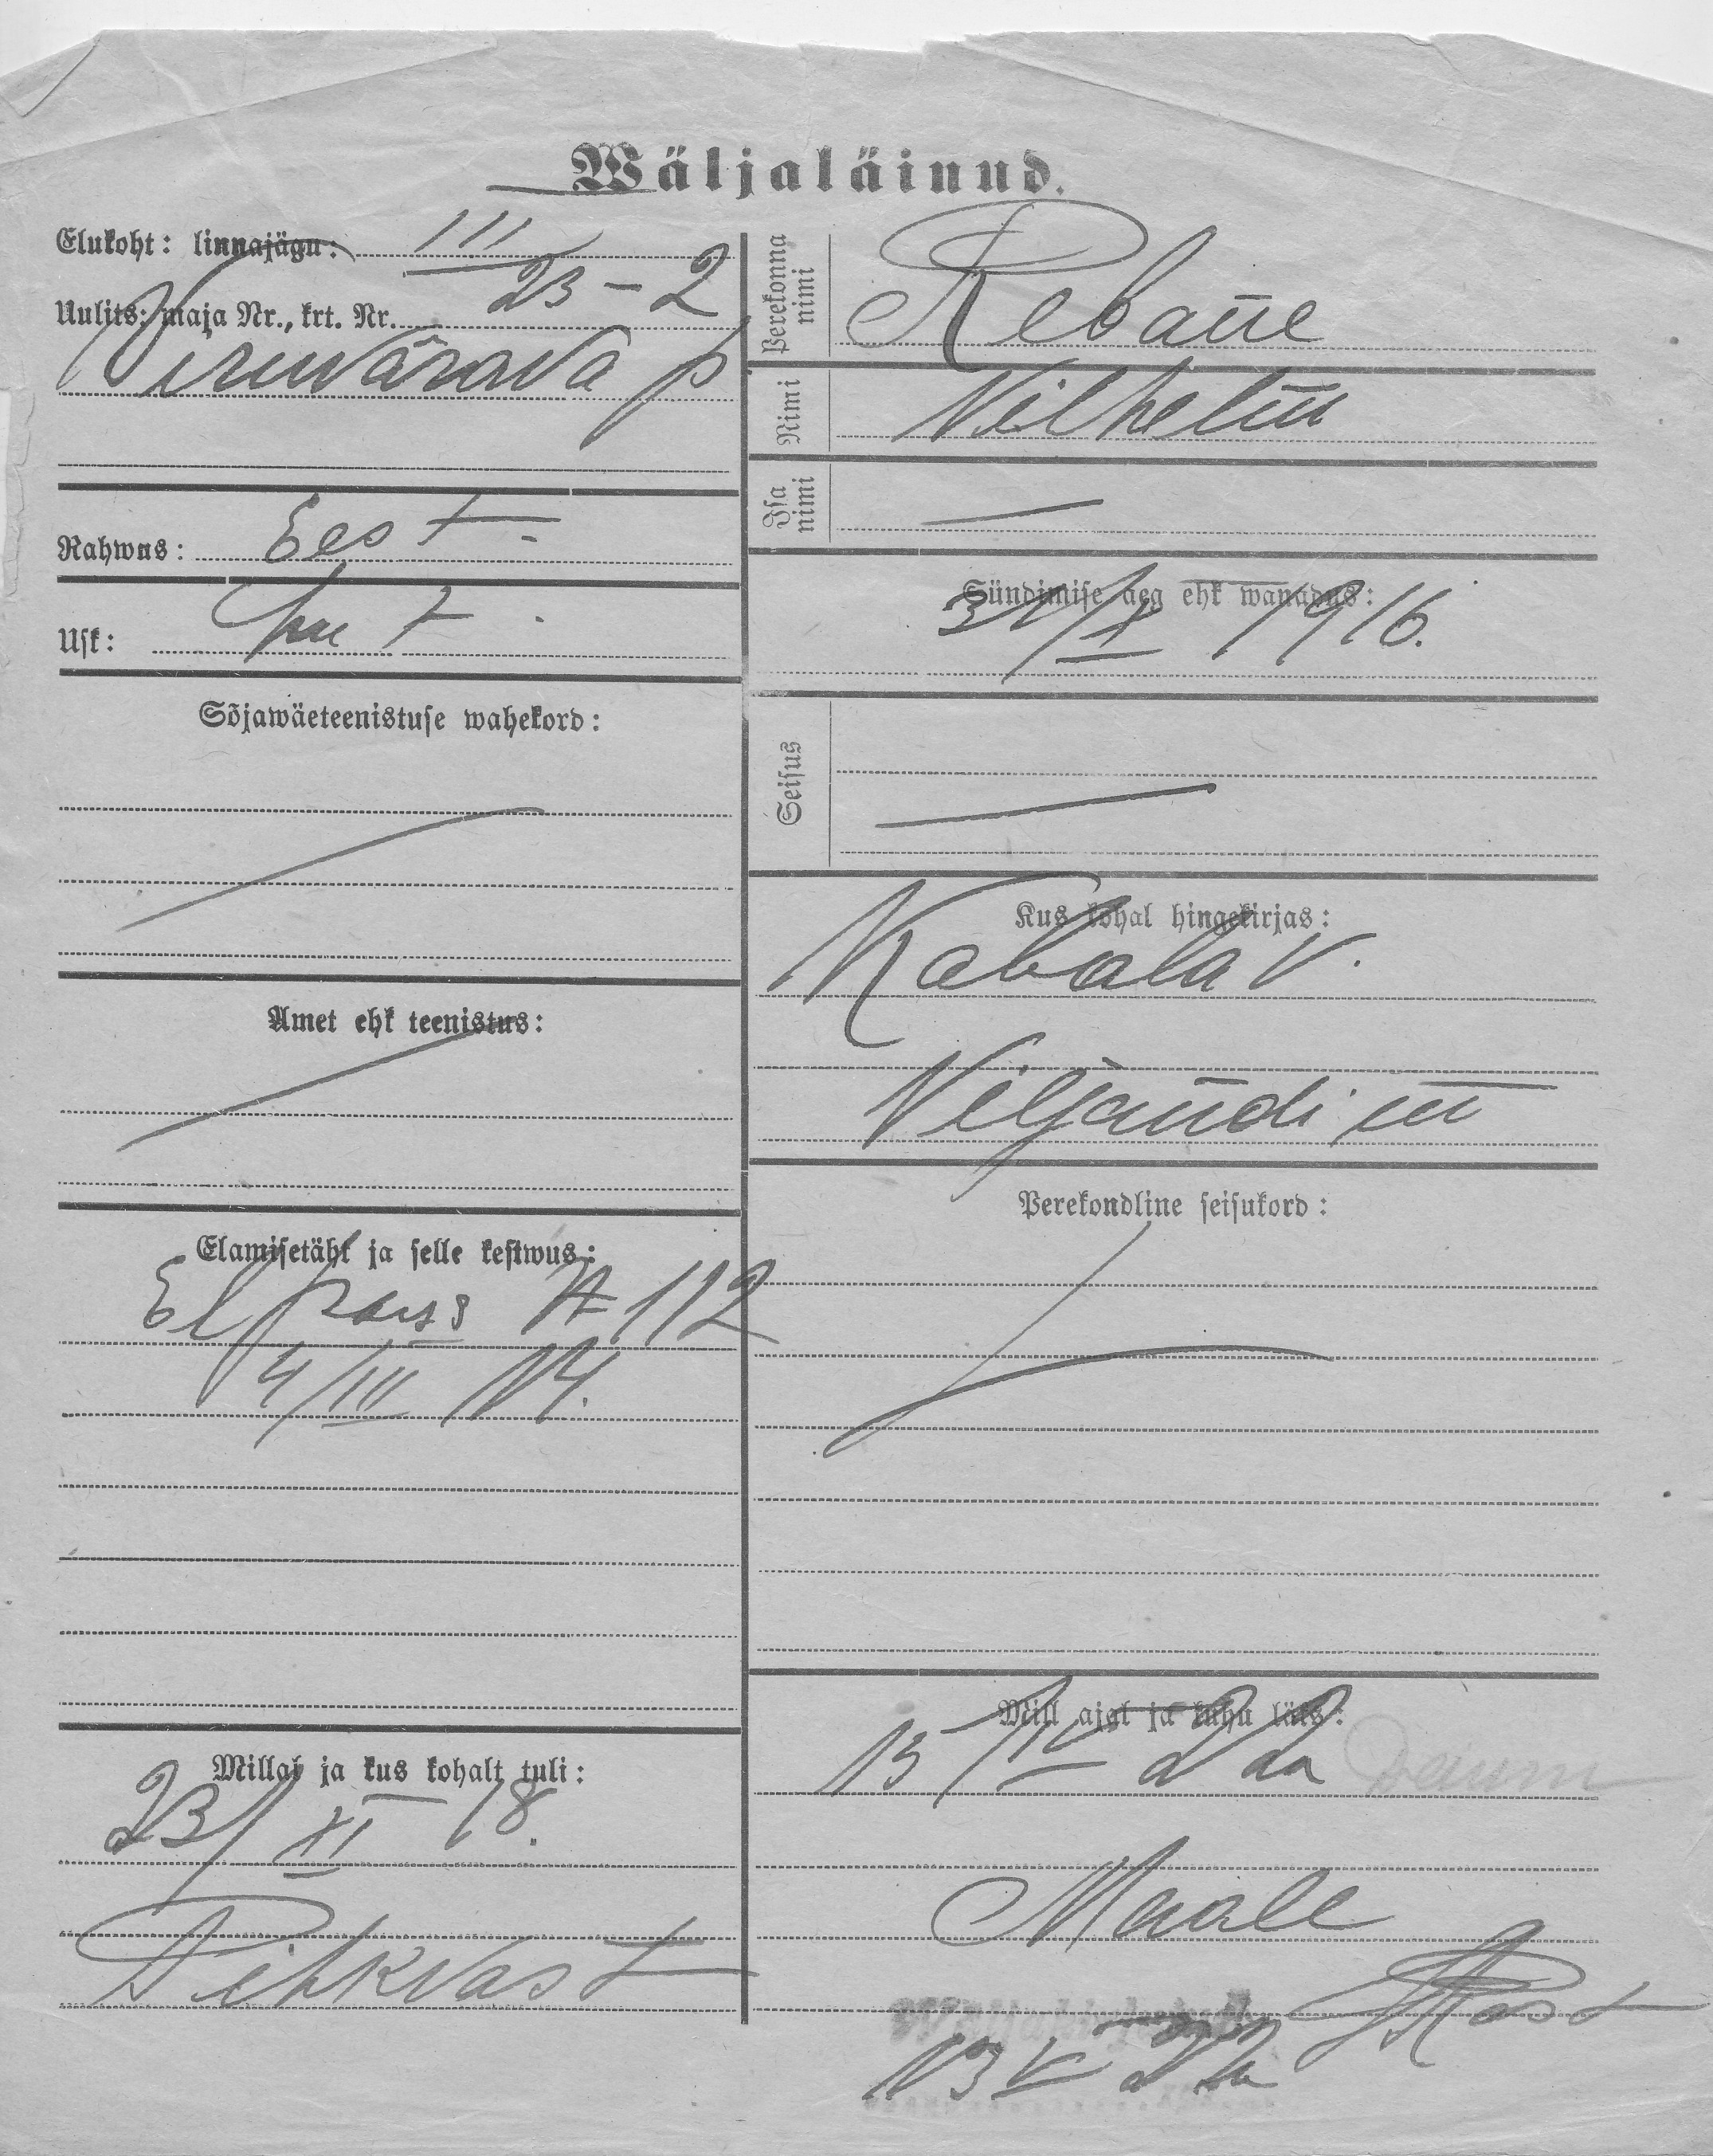 Wäljaläinud.
Elukoht: linnajägu: III
Uulits: maja Nr., krt. Nr. 23 – 2
Viruvärava p
Rahwus: Eest.
Usk: Lut.
Sõjawäeteenistuse wahekord:
Amet ehk teenistus:
Elamisetäht ja selle kestwus:
El pass № 112
4/III 14.
Millal ja kus kohalt tuli:
23/XI 18.
Pihkvast
Perekonna nimi Rebane
Nimi Vilhelm
Isa nimi —
Sündimise aeg ehk wanadus:
31/X 1916.
Seisus —
Kus kohal hingekirjas:
Kabala v.
Viljandi m
Perekondline seisukord:
Mill ajal ja kuhu läks:
15/IV 22
Maale
13 V 22